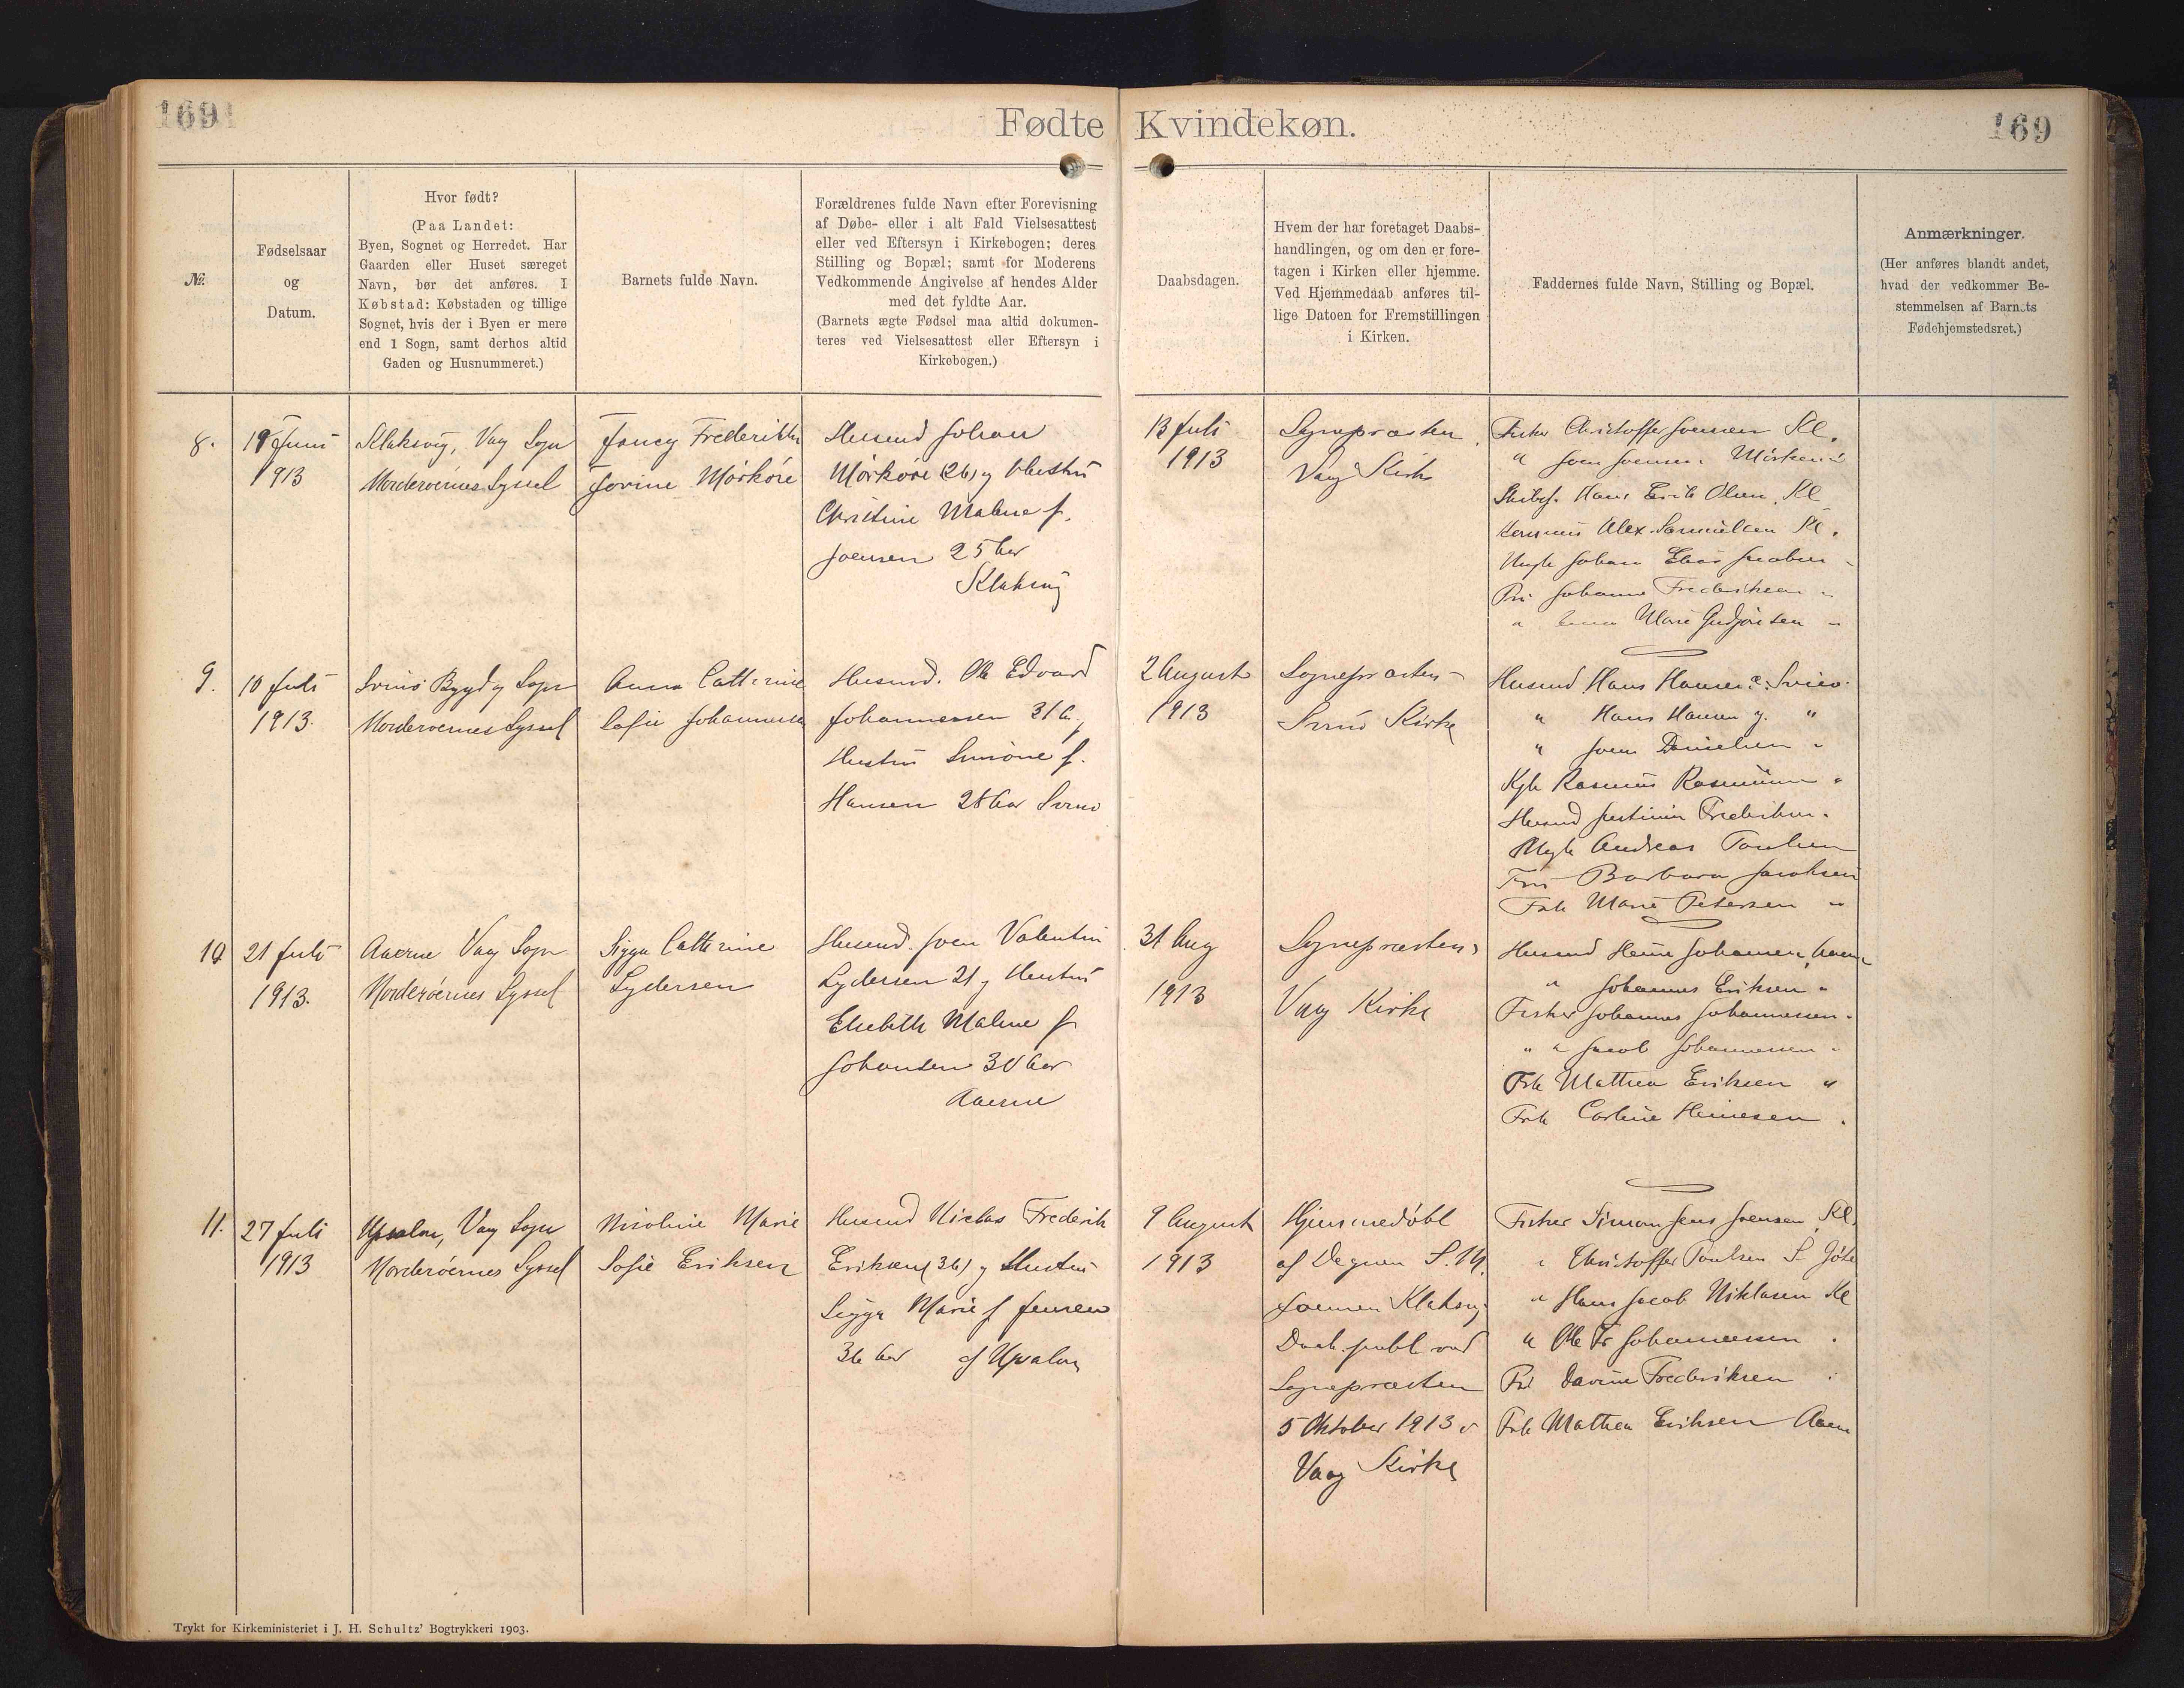 169
Fødte
Kvindekøn.
169
№.
Fødselsaar
og
Datum.
Hvor født?
(Paa Landet:
Byen, Sognet og Herredet. Har
Gaarden eller Huset særeget
Navn, bør det anføres. I
Købstad: Købstaden og tillige
Sognet, hvis der i Byen er mere
end 1 Sogn, samt derhos altid
Gaden og Husnummeret.)
Barnets fulde Navn.
Forældrenes fulde Navn efter Forevisning
af Døbe- eller i alt Fald Vielsesattest
eller ved Eftersyn i Kirkebogen; deres
Stilling og Bopæl; samt for Moderens
Vedkommende Angivelse af hendes Alder
med det fyldte Aar.
(Barnets ægte Fødsel maa altid dokumen-
teres ved Vielsesattest eller Eftersyn i
Kirkebogen.)
Daabsdagen.
Hvem der har foretaget Daabs-
handlingen, og om den er fore-
tagen i Kirken eller hjemme.
Ved Hjemmedaab anføres til-
lige Datoen for Fremstillingen
i Kirken.
Faddernes fulde Navn, Stilling og Bopæl.
Anmærkninger.
(Her anføres blandt andet,
hvad der vedkommer Be-
stemmelsen af Barnets
Fødehjemstedsret.)
8.
Juni
1913
Klaksvig, Vaag Sogn
Norderøernes Syssel
Frederikke
Mørkøre
Husmd Johan
Mørkøre (26) og Hustru
Christine Malene f.
Joensen 25 Aar
Klaksvig
13 Juli
1913
Sognepræsten
Vaag Kirke
Fisker Christoffer Joensen Kl.
" Joen Joensen
Hans Erik Olsen Kl
Alex Samuelsen Kl.
Johan Elias Jacobsen
Johanne Frederiksen "
" Marie
9.
10 Juli
1913.
Svinø Bygd og Sogn
Norderøernes Syssel
Anna Catterine
Sofie Johannesen
Husmd. Ole Edvard
Johannesen 31 og
Hustru Simone f.
Hansen 28 Aar Svinø
2 August
1913
Sognepræsten
Svinø Kirke
Husmd Hans Hansen æ. Svinø
" Hans Hansen y. "
" Joen Danielsen "
Rasmus Rasmussen "
Husmd Frederiksen
Andreas Poulsen
Barbara Jacobsen
Frk Marie Petersen "
10
21 Juli
1913.
Aaerne Vaag Sogn
Norderøernes Syssel
Sigga Catterine
Lydersen
Husmd. Joen Valentin
Lydersen 21 og Hustru
Elsebeth Malene f
Johansen 30 Aar
Aaerne
31 Aug
1913
Sognepræsten
Vaag Kirke
Husmd Johansen, Aaerne
" Johannes Eriksen "
Fisker Johannes Johannesen "
" " Jacob Johannesen "
Frk Matthea Eriksen "
Frk Heinesen
11.
27 Juli
1913
Upsalen, Vaag Sogn
Norderøernes Syssel
Nicoline Marie
Sofie Eriksen
Husmd Niclas Frederik
Eriksen (36) og Hustru
Sigga Marie f Jensen
36 Aar af Upsalen
9 August
1913
Hjemmedøbt
af Degnen S. M.
Joensen Klaksvig
Daab. publ. ved
Sognepræsten
5 Oktober 1913 i
Vaag Kirke
Fisker Simon Jens Joensen Kl.
" Christoffer Poulsen S. Gøte
" Hans Jacob Niklasen Kl
" Ole Fr Johannesen
Davine Frederiksen
Frk Matthea Eriksen Aaerne
Trykt for Kirkeministeriet i J. H. Schultz' Bogtrykkeri 1903.